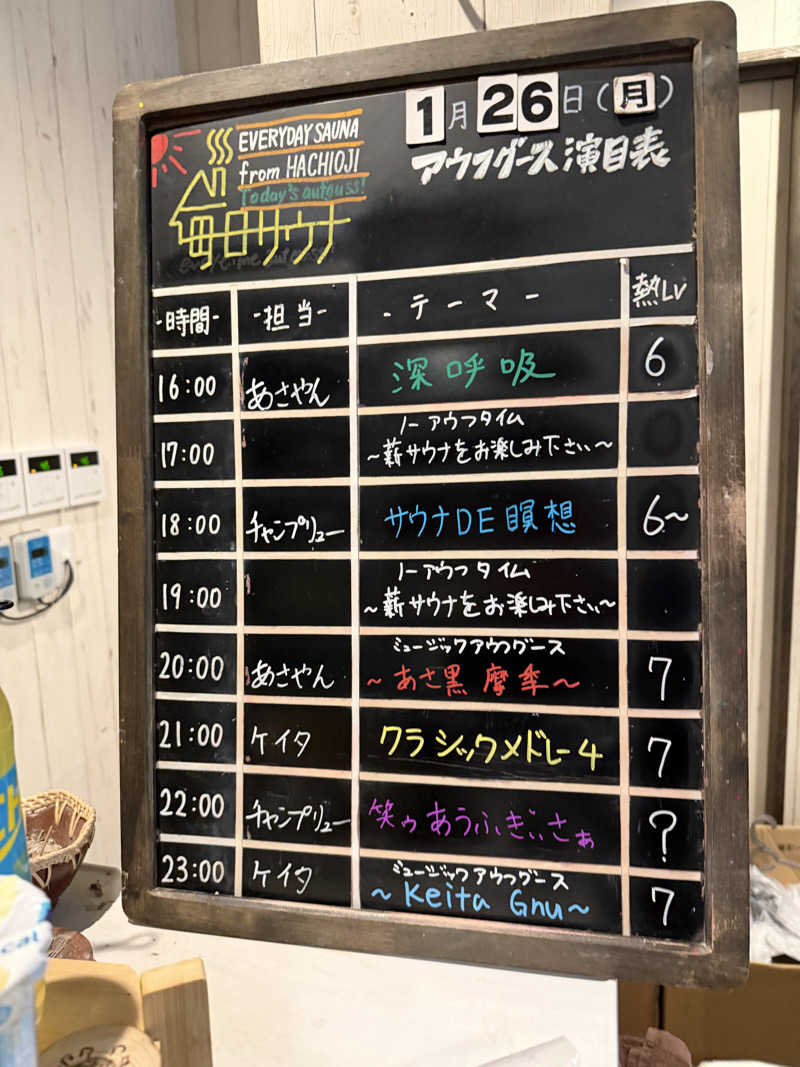 EVERYDAY SAUNA
from HACHIOJI
Today's aufguss!
毎日サウナ
1月26日(月)
アウフグース演目表
-時間- -担当- -テーマ- 熱Lv
16:00 あさやん 深呼吸 6
17:00 ノーアウフタイム
~薪サウナをお楽しみ下さい~
18:00 チャンプリュー サウナDE瞑想 6~
19:00 ノーアウフタイム
~薪サウナをお楽しみ下さい~
ミュージックアウフグース
20:00 あさやん ~あさ黒摩季~ 7
21:00 ケイタ クラシックメドレー4 7
22:00 チャンプリュー 笑ゥあうふぎぃさぁ ?
ミュージックアウフグース
23:00 ケイタ ~Keita Gnu~ 7